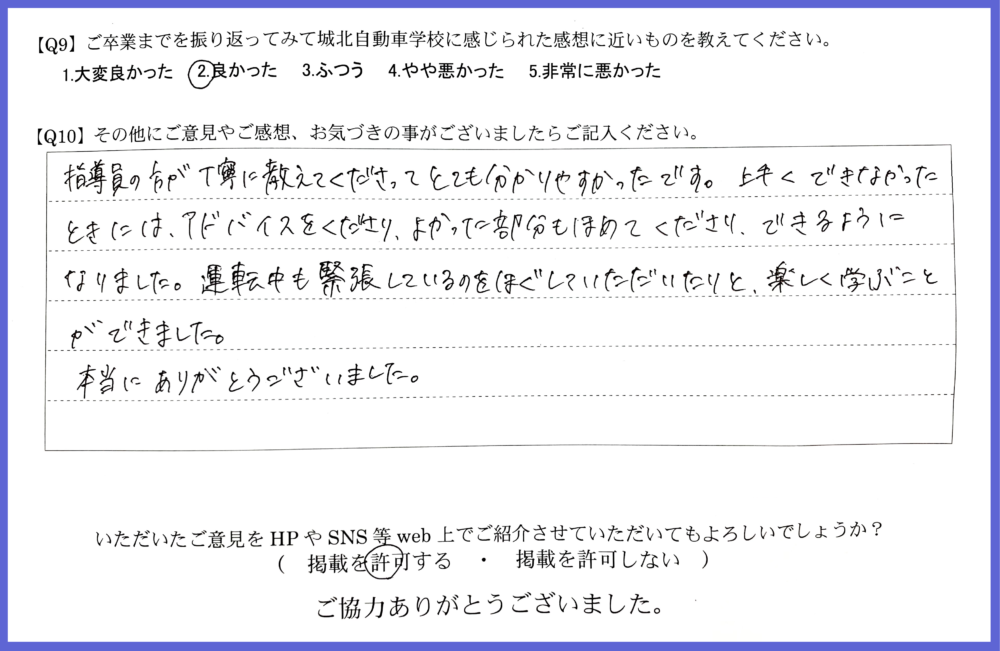 【Q9】ご卒業までを振り返ってみて城北自動車学校に感じられた感想に近いものを教えてください。
1.大変良かった 2.良かった 3.ふつう 4.やや悪かった 5.非常に悪かった
【Q10】その他にご意見やご感想、お気づきの事がございましたらご記入ください。
指導員の方が丁寧に教えてくださってとても分かりやすかったです。上手くできなかった
ときには、アドバイスをくださり、よかった部分もほめてくださり、できるように
なりました。運転中も緊張しているのをほぐしていただいたりと、楽しく学ぶこと
ができました。
本当にありがとうございました。
いただいたご意見をHPやSNS等web上でご紹介させていただいてもよろしいでしょうか？
( 掲載を許可する ・ 掲載を許可しない )
ご協力ありがとうございました。